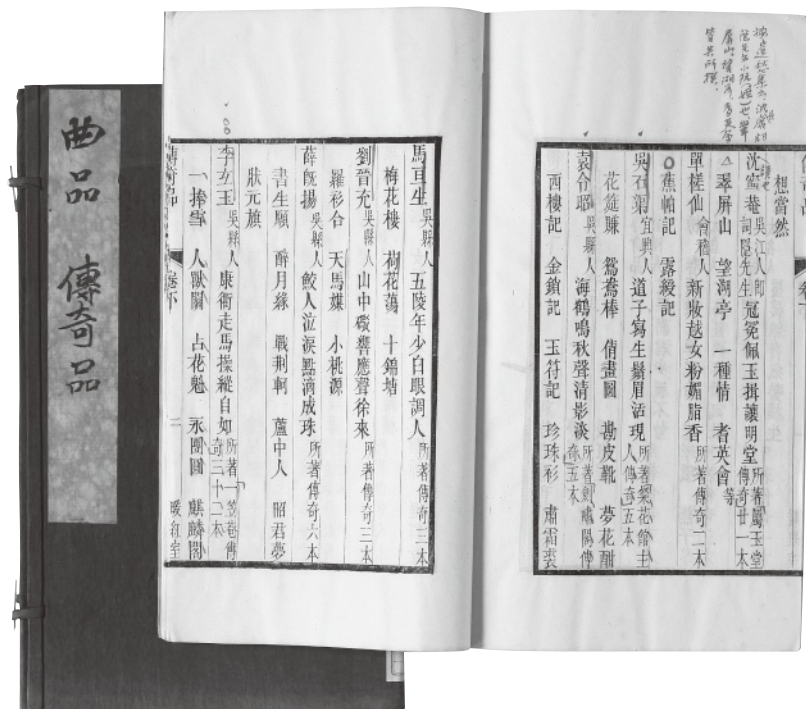 曲品 傳奇品
皆其所撰。
想當然
沈寧菴 吳江人即詞隱先生 冠冕佩玉揖讓明堂 所著屬玉堂傳奇廿一本
翠屏山 望湖亭 一種情 耆英會等
單槎仙 會稽人 新妝越女粉媚脂香 所著傳奇二本
蕉帕記 露綬記
吳石渠 宜興人 道子寫生鬚眉活現 所著粲花館主人傳奇五本
花筵賺 鴛鴦棒 倩畫圖 勘皮靴 夢花酣
袁令昭 吳縣人 海鶴鳴秋聲清影淡 所著劍嘯閣傳奇五本
西樓記 金鎖記 玉符記 珍珠衫 肅霜裘
馬亘生 吳縣人 五陵年少白眼調人 所著傳奇三本
梅花樓 荷花蕩 十錦塘
劉晉充 吳縣人 山中礮響應聲徐來 所著傳奇三本
羅衫合 天馬媒 小桃源
薛旣揚 吳縣人 鮫人泣淚點滴成珠 所著傳奇六本
書生願 醉月緣 戰荆軻 蘆中人 昭君夢
狀元旗
李玄玉 吳縣人 康衢走馬操縱自如 所著一笠菴傳奇三十二本
一捧雪 人獸關 占花魁 永團圓 麒麟閣
傳奇品 卷下 二 暖紅室